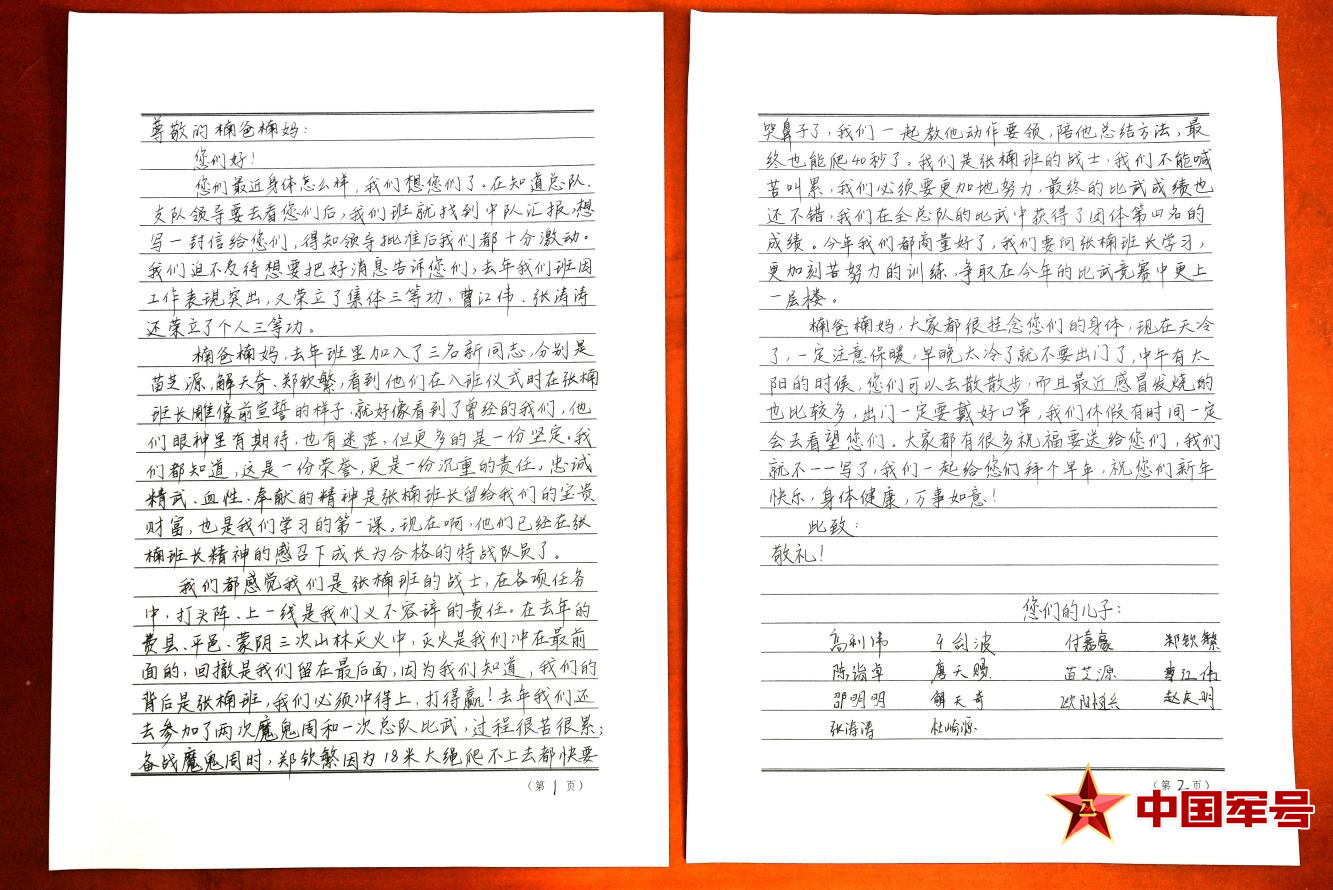 尊敬的楠爸楠妈：
您们好！
您们最近身体怎么样，我们想您们了。在知道总队、
支队领导要去看您们后，我们班就找到中队汇报，想
写一封信给您们，得知领导批准后我们都十分激动。
我们迫不及待想要把好消息告诉您们，去年我们班因
工作表现突出，又荣立了集体三等功，曹江伟、张涛涛
还荣立了个人三等功。
楠爸楠妈，去年班里加入了三名新同志，分别是
苗芝源，解天奇、郑钦繁，看到他们在入班仪式时在张楠
班长雕像前宣誓的样子，就好像看到了曾经的我们，他
们眼神里有期待，也有迷茫，但更多的是一份坚定。我
们都知道，这是一份荣誉，更是一份沉重的责任。忠诚
精武、血性、奉献的精神是张楠班长留给我们的宝贵
财富，也是我们学习的第一课。现在啊，他们已经在张
楠班长精神的感召下成长为合格的特战队员了。
我们都感觉我们是张楠班的战士，在各项任务
中，打头阵、上一线是我们义不容辞的责任。在去年的
费县、平邑、蒙阴三次山林灭火中，灭火是我们冲在最前
面的，回撤是我们留在最后面，因为我们知道，我们的
背后是张楠班，我们必须冲得上，打得赢！去年我们还
去参加了两次魔鬼周和一次总队比武，过程很苦很累；
备战魔鬼周时，郑钦繁因为18米大绳爬不上去都快要
（第1页）
哭鼻子了，我们一起教他动作要领，陪他总结方法，最
终也能爬40秒了。我们是张楠班的战士，我们不能喊
苦叫累，我们必须要更加地努力，最终的比武成绩也
还不错，我们在全总队的比武中获得了团体第四名的
成绩。今年我们都商量好了，我们要向张楠班长学习，
更加刻苦努力的训练，争取在今年的比武竞赛中更上
一层楼。
楠爸楠妈，大家都很挂念您们的身体，现在天冷
了，一定注意保暖，早晚太冷了就不要出门了，中午有太
阳的时候，您们可以去散散步，而且最近感冒发烧的
也比较多，出门一定要戴好口罩，我们休假有时间一定
会去看望您们。大家都有很多祝福要送给您们，我们
就不一一写了，我们一起给您们拜个早年，祝您们新年
快乐，身体健康，万事如意！
此致：
敬礼！
您们的儿子：
高利伟 付嘉豪 郑钦繁
唐天赐 苗芝源 曹江伟
邵明明 解天奇 赵友明
张涛涛
（第2页）
中国军号